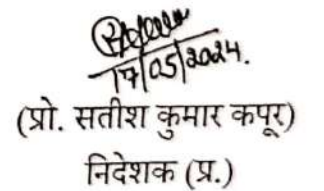 17/05/2024.
(प्रो. सतीश कुमार कपूर)
निदेशक (प्र.)